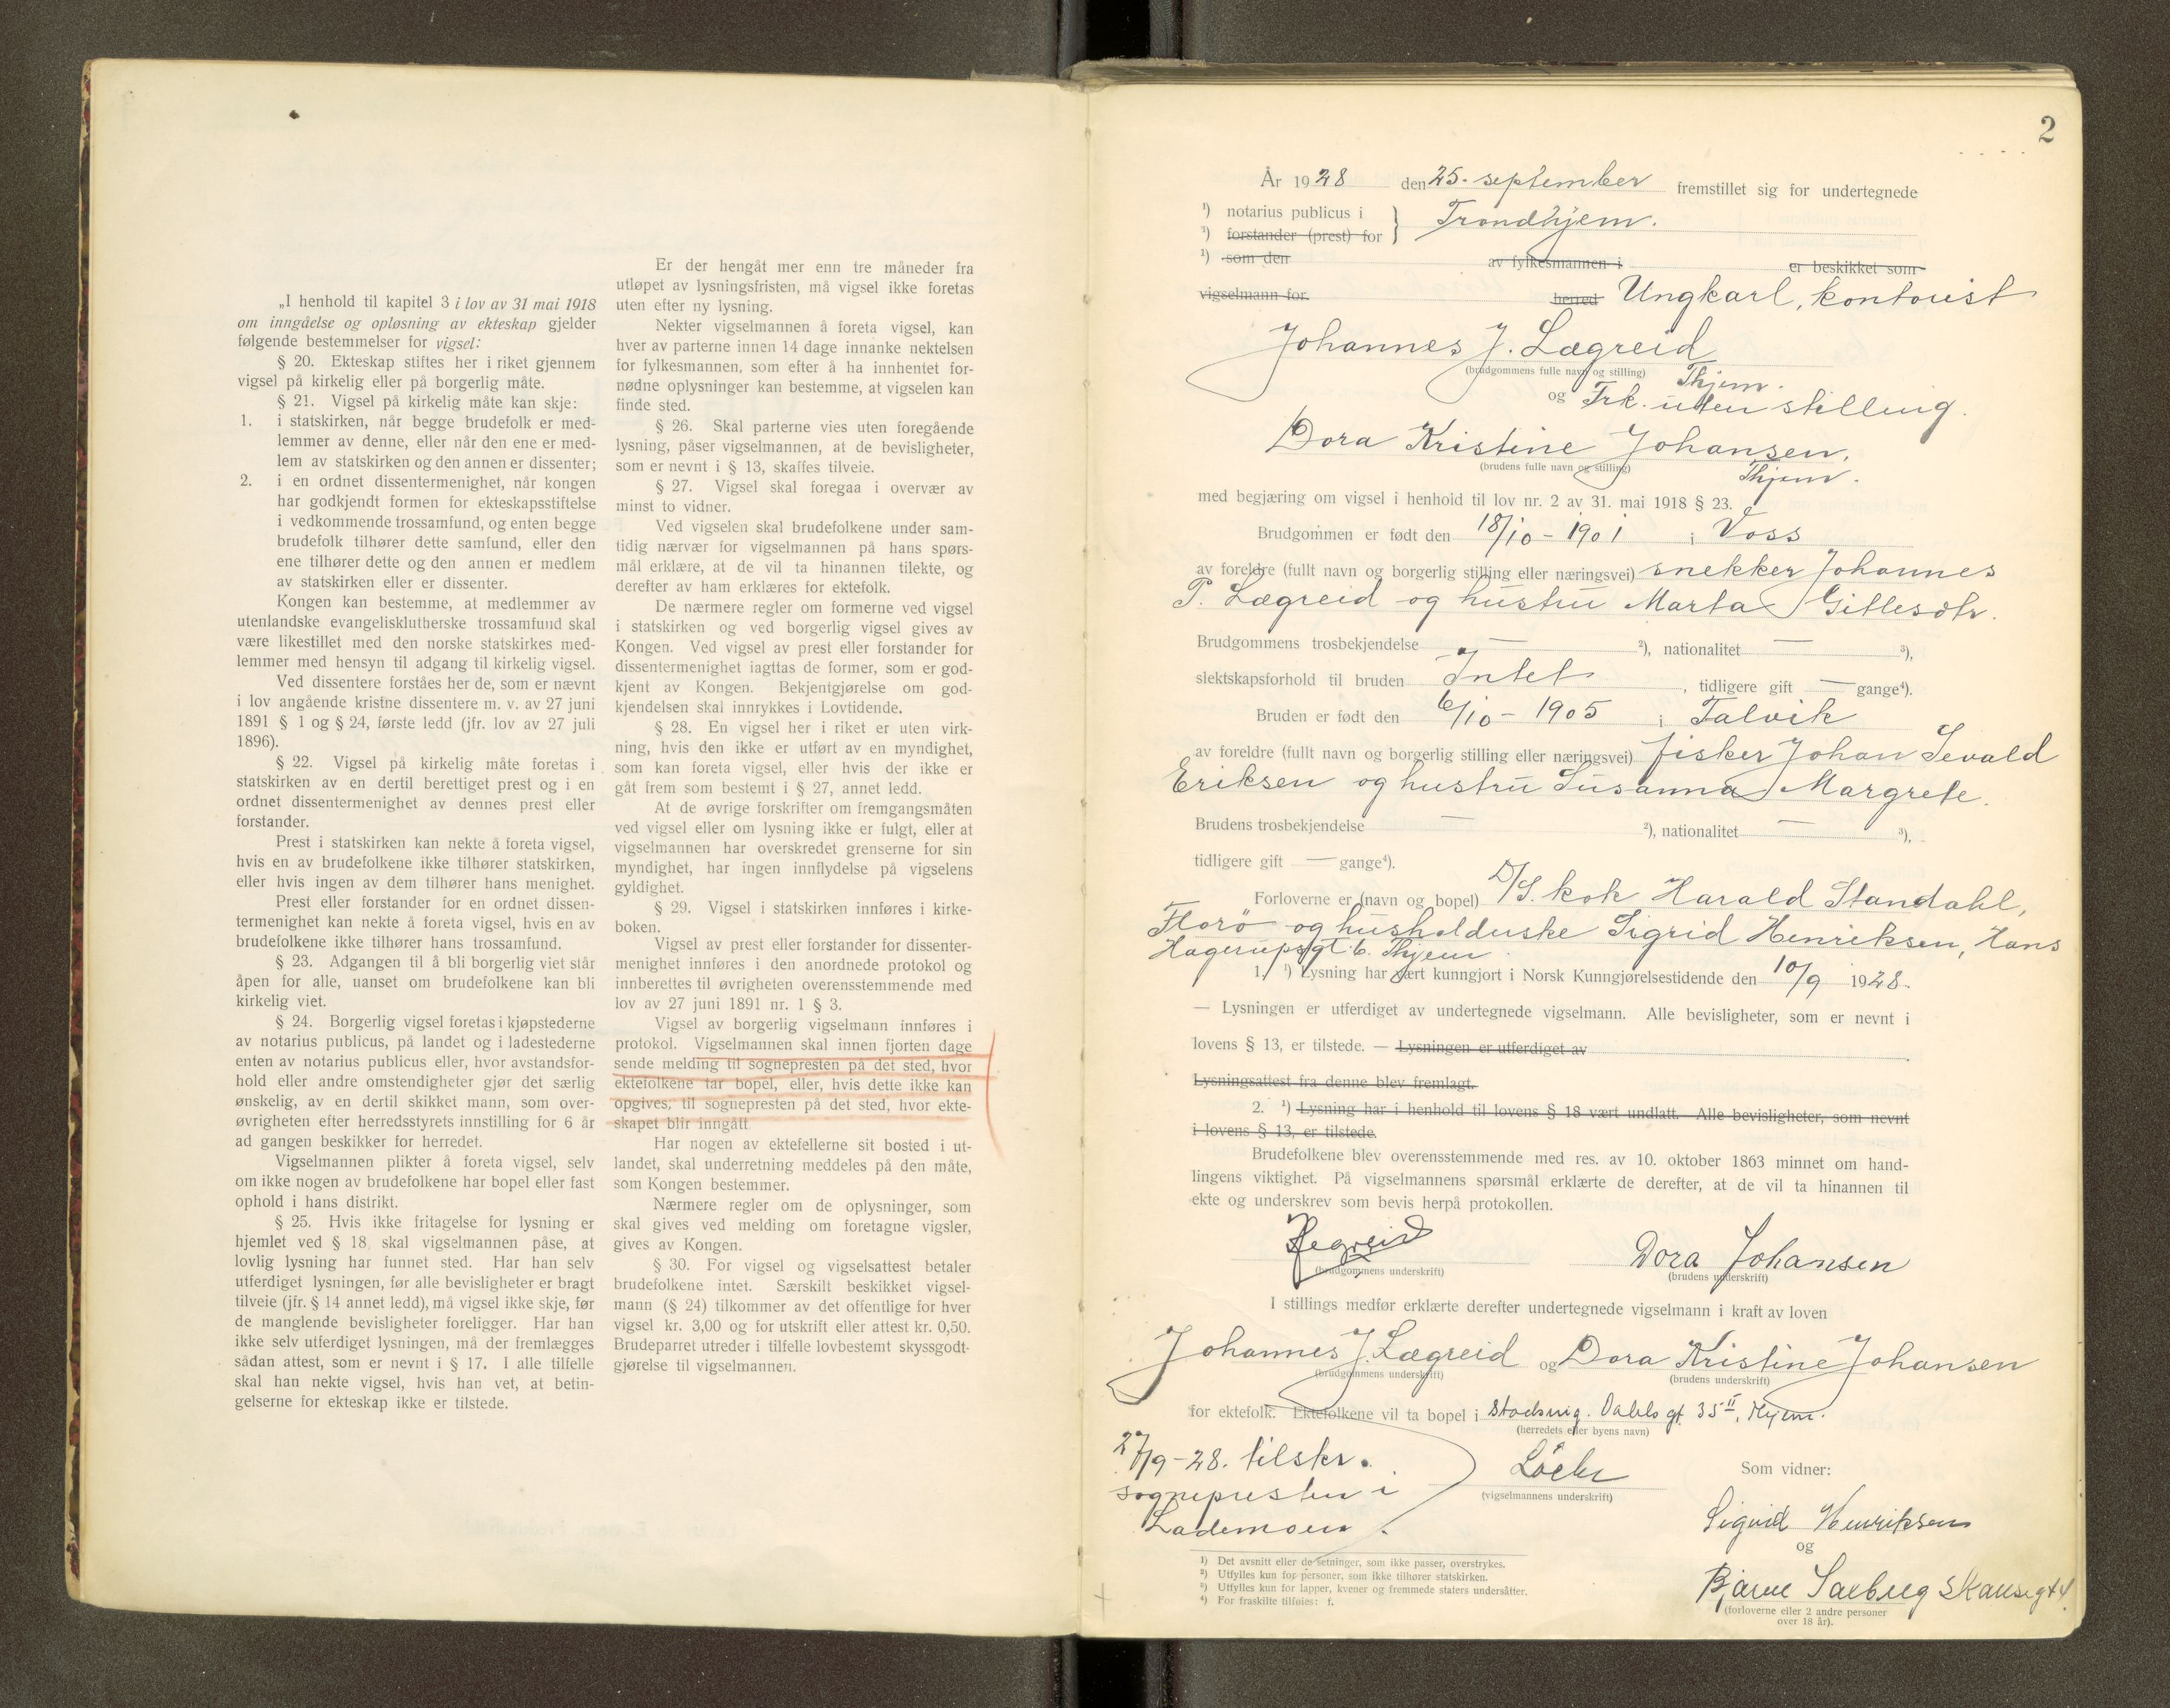 „I henhold til kapitel 3 i lov av 31 mai 1918
om inngåelse og opløsning av ekteskap gjelder
følgende bestemmelser for vigsel:
§ 20. Ekteskap stiftes her i riket gjennem
vigsel på kirkelig eller på borgerlig måte.
§ 21. Vigsel på kirkelig måte kan skje:
1. i statskirken, når begge brudefolk er med-
lemmer av denne, eller når den ene er med-
lem av statskirken og den annen er dissenter;
2. i en ordnet dissentermenighet, når kongen
har godkjendt formen for ekteskapsstiftelse
i vedkommende trossamfund, og enten begge
brudefolk tilhører dette samfund, eller den
ene tilhører dette og den annen er medlem
av statskirken eller er dissenter.
Kongen kan bestemme, at medlemmer av
utenlandske evangelisklutherske trossamfund skal
være likestillet med den norske statskirkes med-
lemmer med hensyn til adgang til kirkelig vigsel.
Ved dissentere forståes her de, som er nævnt
i lov angående kristne dissentere m. v. av 27 juni
1891 § 1 og § 24, første ledd (jfr. lov av 27 juli
1896).
§ 22. Vigsel på kirkelig måte foretas i
statskirken av en dertil berettiget prest og i en
ordnet dissentermenighet av dennes prest eller
forstander.
Prest i statskirken kan nekte å foreta vigsel,
hvis en av brudefolkene ikke tilhører statskirken,
eller hvis ingen av dem tilhører hans menighet.
Prest eller forstander for en ordnet dissen-
termenighet kan nekte å foreta vigsel, hvis en av
brudefolkene ikke tilhører hans trossamfund.
§ 23. Adgangen til å bli borgerlig viet står
åpen for alle, uanset om brudefolkene kan bli
kirkelig viet.
§ 24. Borgerlig vigsel foretas i kjøpstederne
av notarius publicus, på landet og i ladestederne
enten av notarius publicus eller, hvor avstandsfor-
hold eller andre omstendigheter gjør det særlig
ønskelig, av en dertil skikket mann, som over-
øvrigheten efter herredsstyrets innstilling for 6 år
ad gangen beskikker for herredet.
Vigselmannen plikter å foreta vigsel, selv
om ikke nogen av brudefolkene har bopel eller fast
ophold i hans distrikt.
§ 25. Hvis ikke fritagelse for lysning er
hjemlet ved § 18, skal vigselmannen påse, at
lovlig lysning har funnet sted. Har han selv
utferdiget lysningen, før alle bevisligheter er bragt
tilveie (jfr. § 14 annet ledd), må vigsel ikke skje, før
de manglende bevisligheter foreligger. Har han
ikke selv utferdiget lysningen, må der fremlægges
sådan attest, som er nevnt i § 17. I alle tilfelle
skal han nekte vigsel, hvis han vet, at betin-
gelserne for ekteskap ikke er tilstede.
Er der hengåt mer enn tre måneder fra
utløpet av lysningsfristen, må vigsel ikke foretas
uten efter ny lysning.
Nekter vigselmannen å foreta vigsel, kan
hver av parterne innen 14 dage innanke nektelsen
for fylkesmannen, som efter å ha innhentet for-
nødne oplysninger kan bestemme, at vigselen kan
finde sted.
§ 26. Skal parterne vies uten foregående
lysning, påser vigselmannen, at de bevisligheter,
som er nevnt i § 13, skaffes tilveie.
§ 27. Vigsel skal foregaa i overvær av
minst to vidner.
Ved vigselen skal brudefolkene under sam-
tidig nærvær for vigselmannen på hans spørs-
mål erklære, at de vil ta hinannen tilekte, og
derefter av ham erklæres for ektefolk.
De nærmere regler om formerne ved vigsel
i statskirken og ved borgerlig vigsel gives av
Kongen. Ved vigsel av prest eller forstander for
dissentermenighet iagttas de former, som er god-
kjent av Kongen. Bekjentgjørelse om god-
kjendelsen skal innrykkes i Lovtidende.
§ 28. En vigsel her i riket er uten virk-
ning, hvis den ikke er utført av en myndighet,
som kan foreta vigsel, eller hvis der ikke er
gåt frem som bestemt i § 27, annet ledd.
At de øvrige forskrifter om fremgangsmåten
ved vigsel eller om lysning ikke er fulgt, eller at
vigselmannen har overskredet grenserne for sin
myndighet, har ingen innflydelse på vigselens
gyldighet.
§ 29. Vigsel i statskirken innføres i kirke-
boken.
Vigsel av prest eller forstander for dissenter-
menighet innføres i den anordnede protokol og
innberettes til øvrigheten overensstemmende med
lov av 27 juni 1891 nr. 1 § 3.
Vigsel av borgerlig vigselmann innføres i
protokol. Vigselmannen skal innen fjorten dage
sende melding til sognepresten på det sted, hvor
ektefolkene tar bopel, eller, hvis dette ikke kan
opgives, til sognepresten på det sted, hvor ekte-
skapet blir inngått
Har nogen av ektefellerne sit bosted i ut-
landet, skal underretning meddeles på den måte,
som Kongen bestemmer.
Nærmere regler om de oplysninger, som
skal gives ved melding om foretagne vigsler,
gives av Kongen.
§ 30. For vigsel og vigselsattest betaler
brudefolkene intet. Særskilt beskikket vigsel-
mann (§ 24) tilkommer av det offentlige for hver
vigsel kr. 3,00 og for utskrift eller attest kr. 0,50.
Brudeparret utreder i tilfelle lovbestemt skyssgodt-
gjørelse til vigselmannen.
2
År 1928 den 25. september fremstillet sig for undertegnede
¹) notarius publicus i } Trondhjem.
¹) forstander (prest) for
¹) som den av fylkesmannen i er beskikket som
vigselmann for. herred Ungkarl, kontorist
Johannes J. Lægreid
(brudgommens fulle navn og stilling) Thjem.
og Frk. uten stilling.
Dora Kristine Johansen,
(brudens fulle navn og stilling) Thjem.
med begjæring om vigsel i henhold til lov nr. 2 av 31. mai 1918 § 23.
Brudgommen er født den 18/10 - 1901 i Voss
av foreldre (fullt navn og borgerlig stilling eller næringsvei) snekker Johannes
P. Lægreid og hustru Marta Gitlesdtr.
Brudgommens trosbekjendelse — ²), nationalitet — ³),
slektskapsforhold til bruden Intet, tidligere gift — gange⁴).
Bruden er født den 6/10 - 1905 i Talvik
av foreldre (fullt navn og borgerlig stilling eller næringsvei) fisker Johan Sevald
Eriksen og hustru Susanna Margrete.
Brudens trosbekjendelse — ²), nationalitet — ³),
tidligere gift — gange⁴).
Forloverne er (navn og bopel) D/S. kok Harald Standahl,
Florö og husholderske Sigrid Henriksen, Hans
Hagerupsgt. 6. Thjem
1. ¹) Lysning har vært kunngjort i Norsk Kunngjørelsestidende den 10/9 1928.
— Lysningen er utferdiget av undertegnede vigselmann. Alle bevisligheter, som er nevnt i
lovens § 13, er tilstede. — Lysningen er utferdiget av
Lysningsattest fra denne blev fremlagt.
2. ¹) Lysning har i henhold til lovens § 18 vært undlatt. Alle bevisligheter, som nevnt
i lovens § 13, er tilstede.
Brudefolkene blev overensstemmende med res. av 10. oktober 1863 minnet om hand-
lingens viktighet. På vigselmannens spørsmål erklærte de derefter, at de vil ta hinannen til
ekte og underskrev som bevis herpå protokollen.
Dora Johansen
(brudgommens underskrift) (brudens underskrift)
I stillings medfør erklærte derefter undertegnede vigselmann i kraft av loven
Johannes J. Lægreid og Dora Kristine Johansen
(brudgommens underskrift) (brudens underskrift)
for ektefolk. Ektefolkene vil ta bopel i Stadsing. Dahls gt. 35 II, Thjem.
(herredets eller byens navn)
27/9-28. tilskr.
sognepresten i
Lademoen.
(vigselmannens underskrift)
Som vidner:
Sigrid Henriksen
og
Bjarne
(forloverne eller 2 andre personer
over 18 år).
¹) Det avsnitt eller de setninger, som ikke passer, overstrykes.
²) Utfylles kun for personer, som ikke tilhører statskirken.
³) Utfylles kun for lapper, kvener og fremmede staters undersåtter.
⁴) For fraskilte tilføies: f.